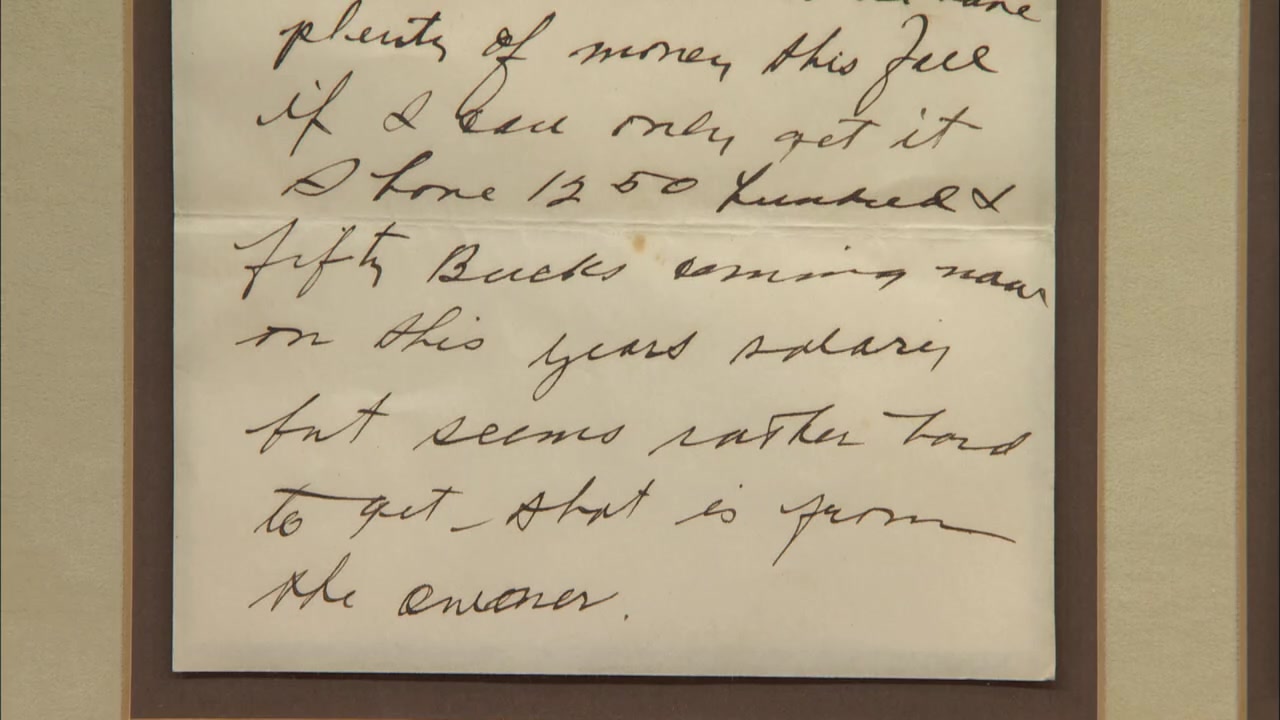 have
plenty of money this Fall
if I can only get it
I have 1250 hundred &
fifty Bucks coming now
on this years salary
but seems rather hard
to get - that is from
the owner.